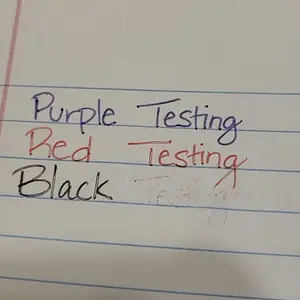 Purple Testing
Red Testing
Black Testing